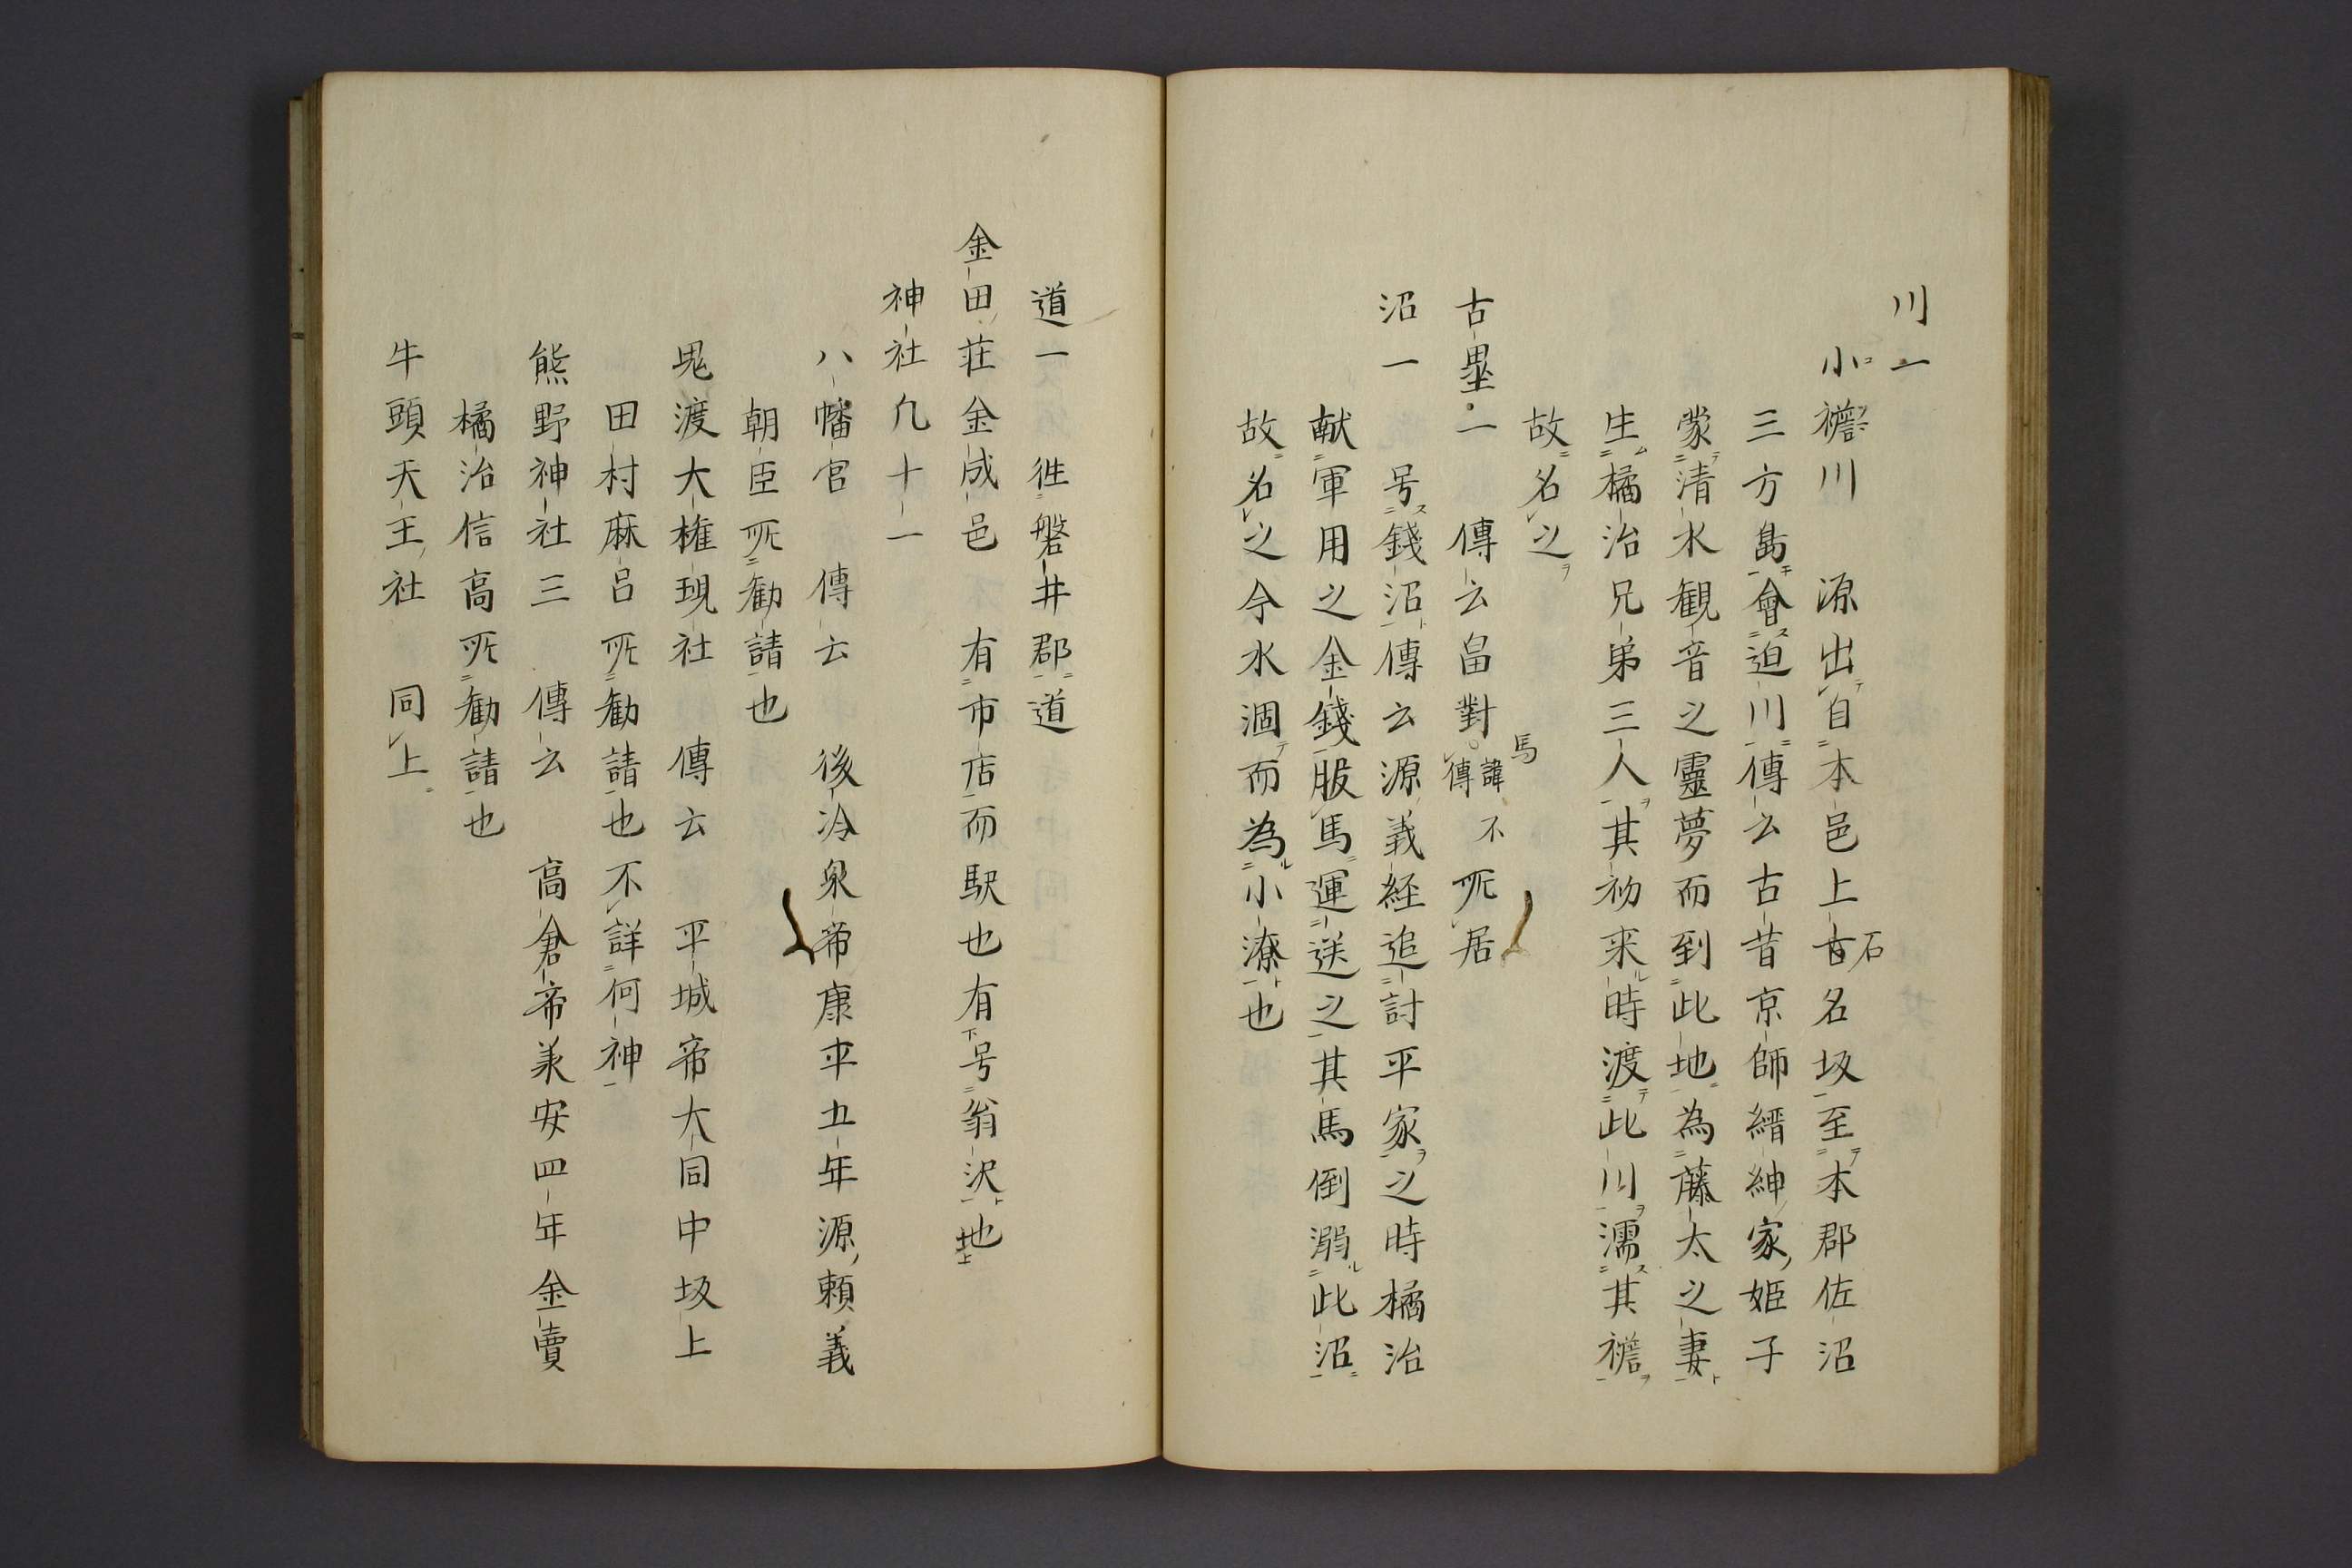 川一
小襜川　源出自本邑上昔石名坂至本郡佐沼
三方島會迫川傳云古昔京師縉紳家姫子
蒙清水観音之靈夢而到此地為藤太之妻
生橘治兄弟三人其初来時渡此川濡其襜
故名之
古壘一　傳云畠對馬諱不傳所居
沼一　号錢沼傳云源義経追討平家之時橘治
献軍用之金錢服馬運送之其馬倒溺此沼
故名之今水涸而為小潦也
道一　徃磐井郡道
金田荘金成邑　有市店而駅也有号翁沢地上
神社凢十一
八幡宮　傳云　後冷泉帝康平五年源頼義
朝臣所勧請也
鬼渡大権現社　傳云　平城帝大同中坂上
田村麻呂所勧請也不詳何神
熊野神社三　傳云　高倉帝美安四年金賣
橘治信高所勧請也
牛頭天王社　同上